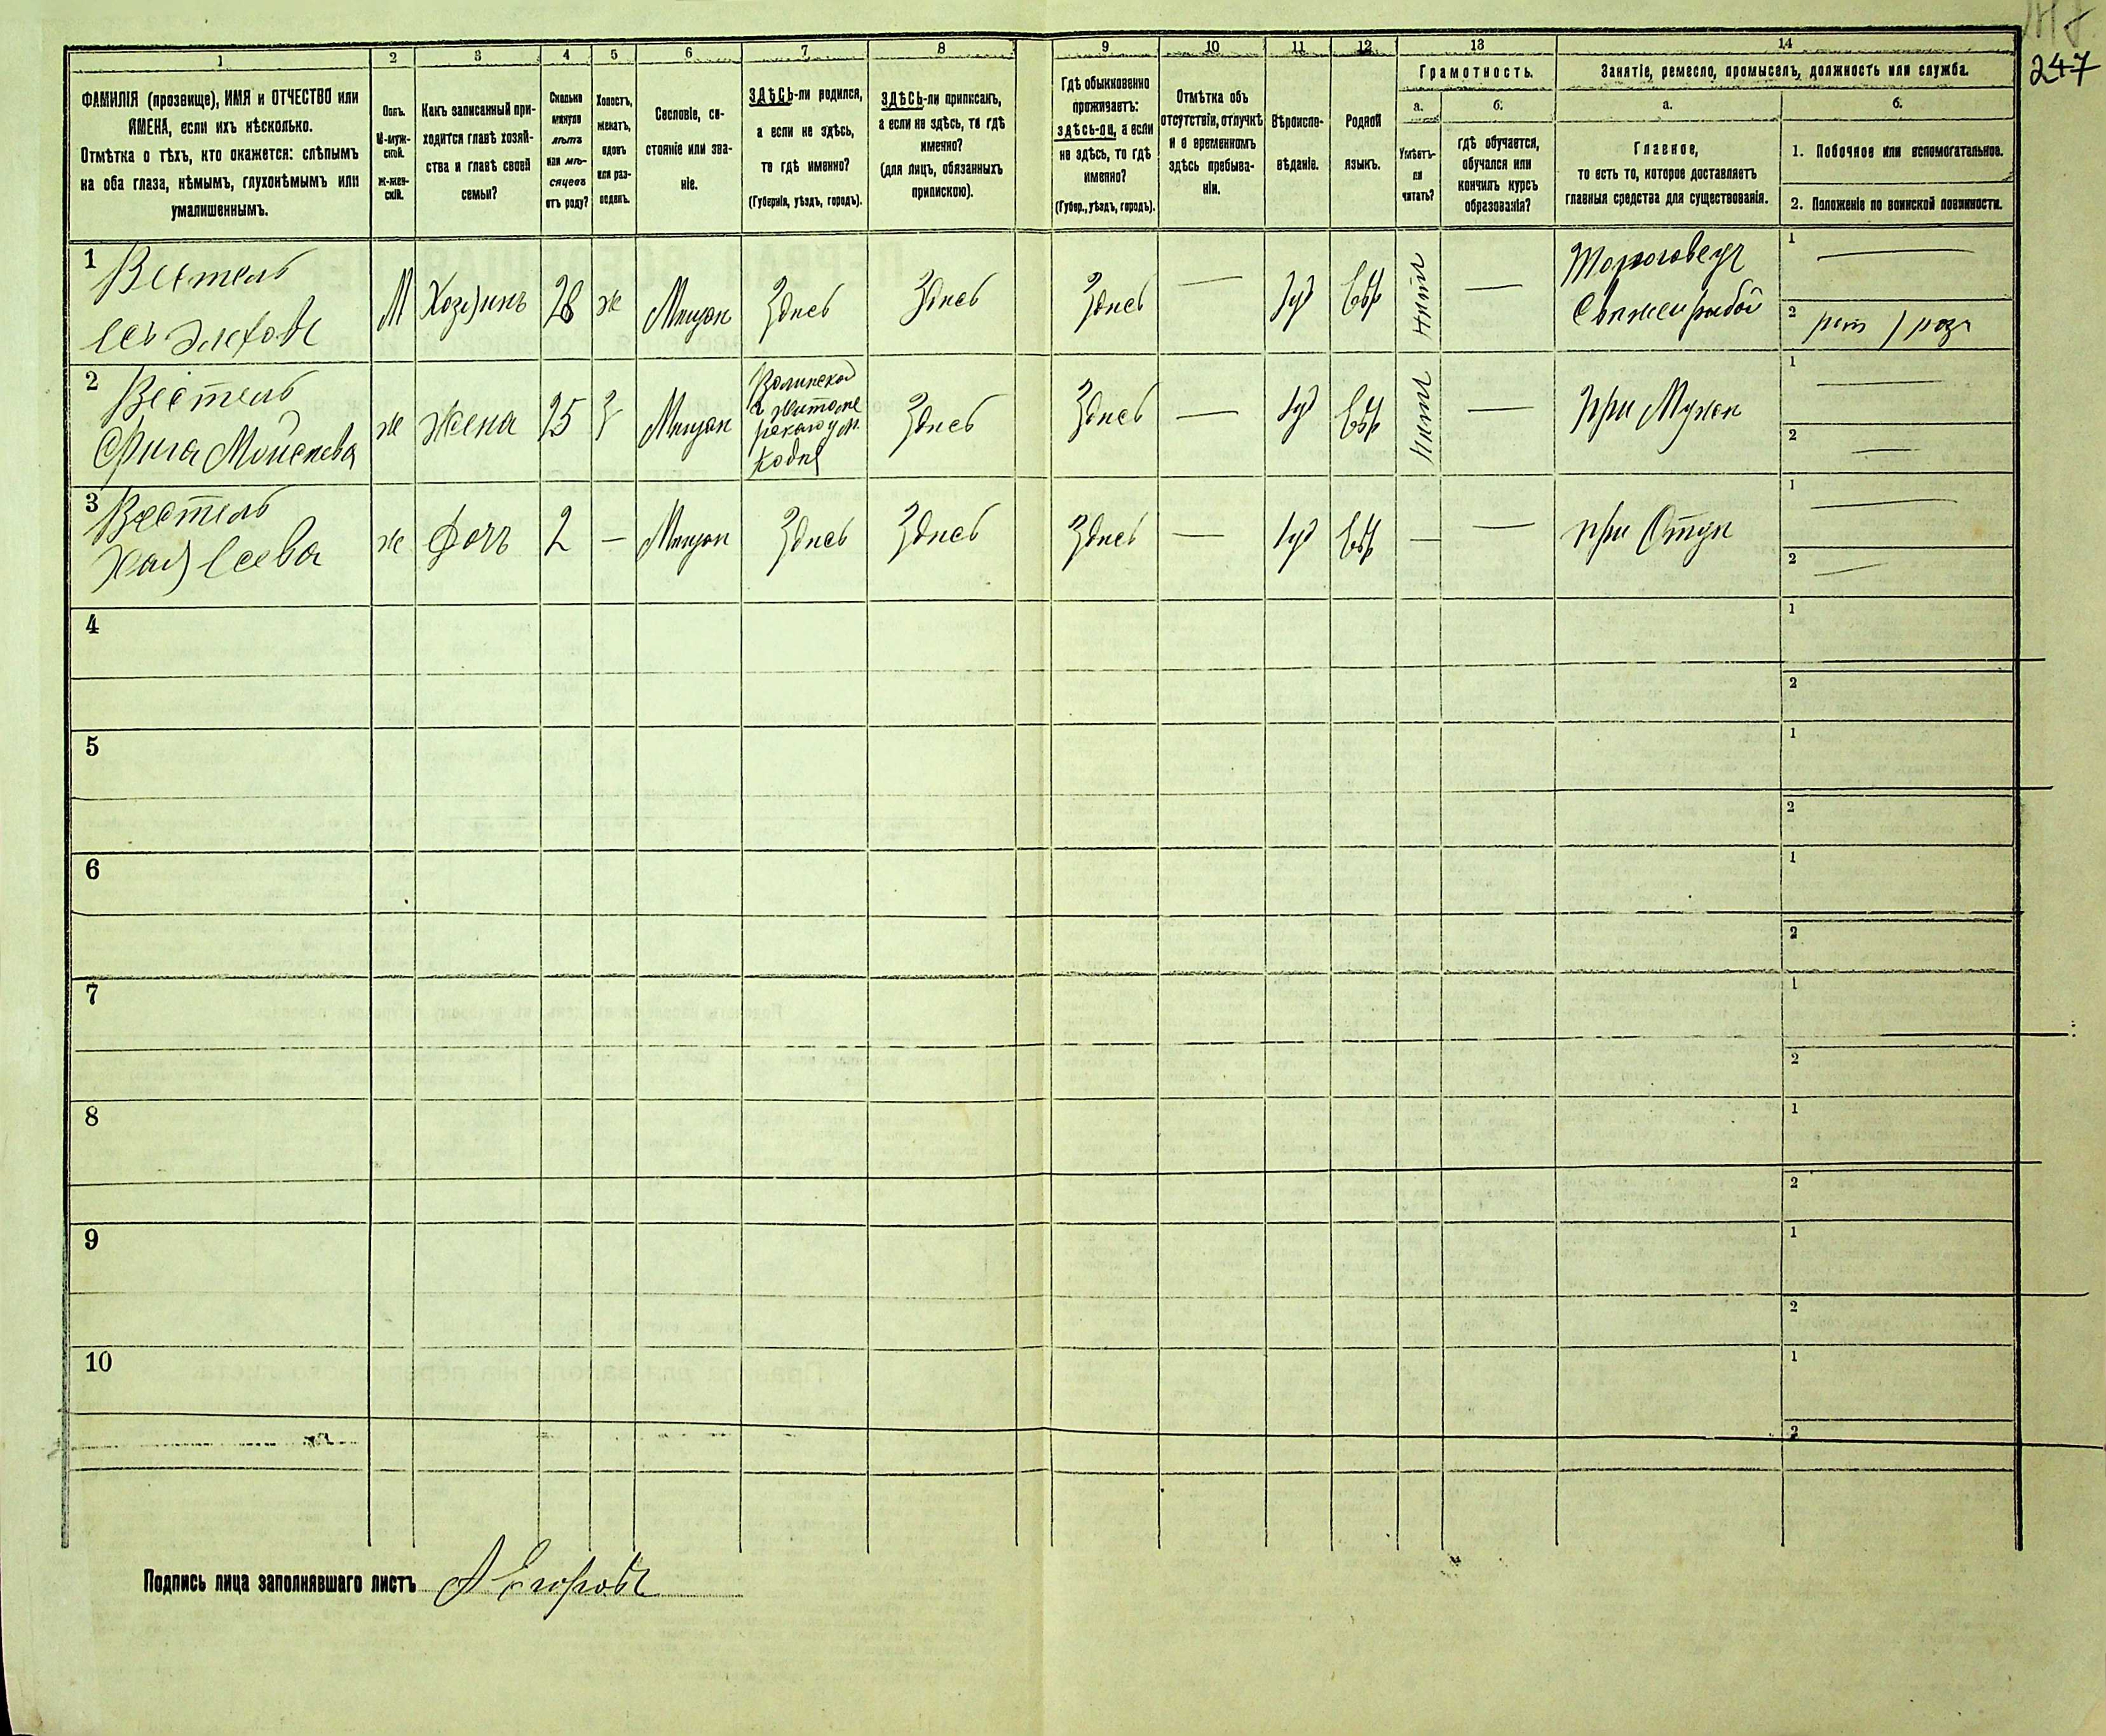 247
1
2
3
4
5
6
7
8
9
10
11
12
13
14
ФАМИЛІЯ (прозвище), ИМЯ и ОТЧЕСТВО или
ИМЕНА, если ихъ нѣсколько.
Отмѣтка о тѣхъ, кто окажется: слѣпымъ
на оба глаза, нѣмымъ, глухонѣмымъ или
умалишеннымъ.
Полъ.
М-муж-
ской.
Ж-жен-
скій.
Какъ записанный при-
ходится главѣ хозяй-
ства и главѣ своей
семьи?
Сколько
минуло
лѣтъ
или мѣ-
сяцевъ
отъ роду?
Холостъ,
женатъ,
вдовъ
или раз-
веденъ.
Сословіе, со-
стояніе или зва-
ніе.
ЗДѢСЬ-ли родился,
а если не здѣсь,
то гдѣ именно?
(Губернія, уѣздъ, городъ).
ЗДѢСЬ-ли приписанъ,
а если не здѣсь, то гдѣ
именно?
(для лицъ, обязанныхъ
припискою).
Гдѣ обыкновенно
проживаетъ:
здѣсь-ли, а если
не здѣсь, то гдѣ
именно?
(Губер., уѣздъ, городъ).
Отмѣтка объ
отсутствіи, отлучкѣ
и о временномъ
здѣсь пребыва-
ніи.
Вѣроиспо-
вѣданіе.
Родной
языкъ.
Грамотность.
а.
Умѣетъ-
ли
читать?
б.
гдѣ обучается,
обучался или
кончилъ курсъ
образованія?
Занятіе, ремесло, промыселъ, должность или служба.
а.
Главное,
то есть то, которое доставляетъ
главныя средства для существованія.
б.
1. Побочное или вспомогательное.
2. Положеніе по воинской повинности.
1
Вестель
М Хозяинъ 28 ж Мещан Здесь Здесь Здесь — Іуд Евр нетъ —
Торговец
Свежей рыбой
1 —
2
2
Вестель
ж Жена 25 З Мещан
Здесь Здесь — Іуд Евр нетъ — При Муже
1 —
2 —
3
Вестель
Хая
ж Дочь 2 — Мещан Здесь Здесь Здесь — Іуд Евр — — при Отце
1 —
2 —
4
1
2
5
1
2
6
1
2
7
1
2
8
1
2
9
1
2
10
1
2
Подпись лица заполнявшаго листъ А Егоровъ